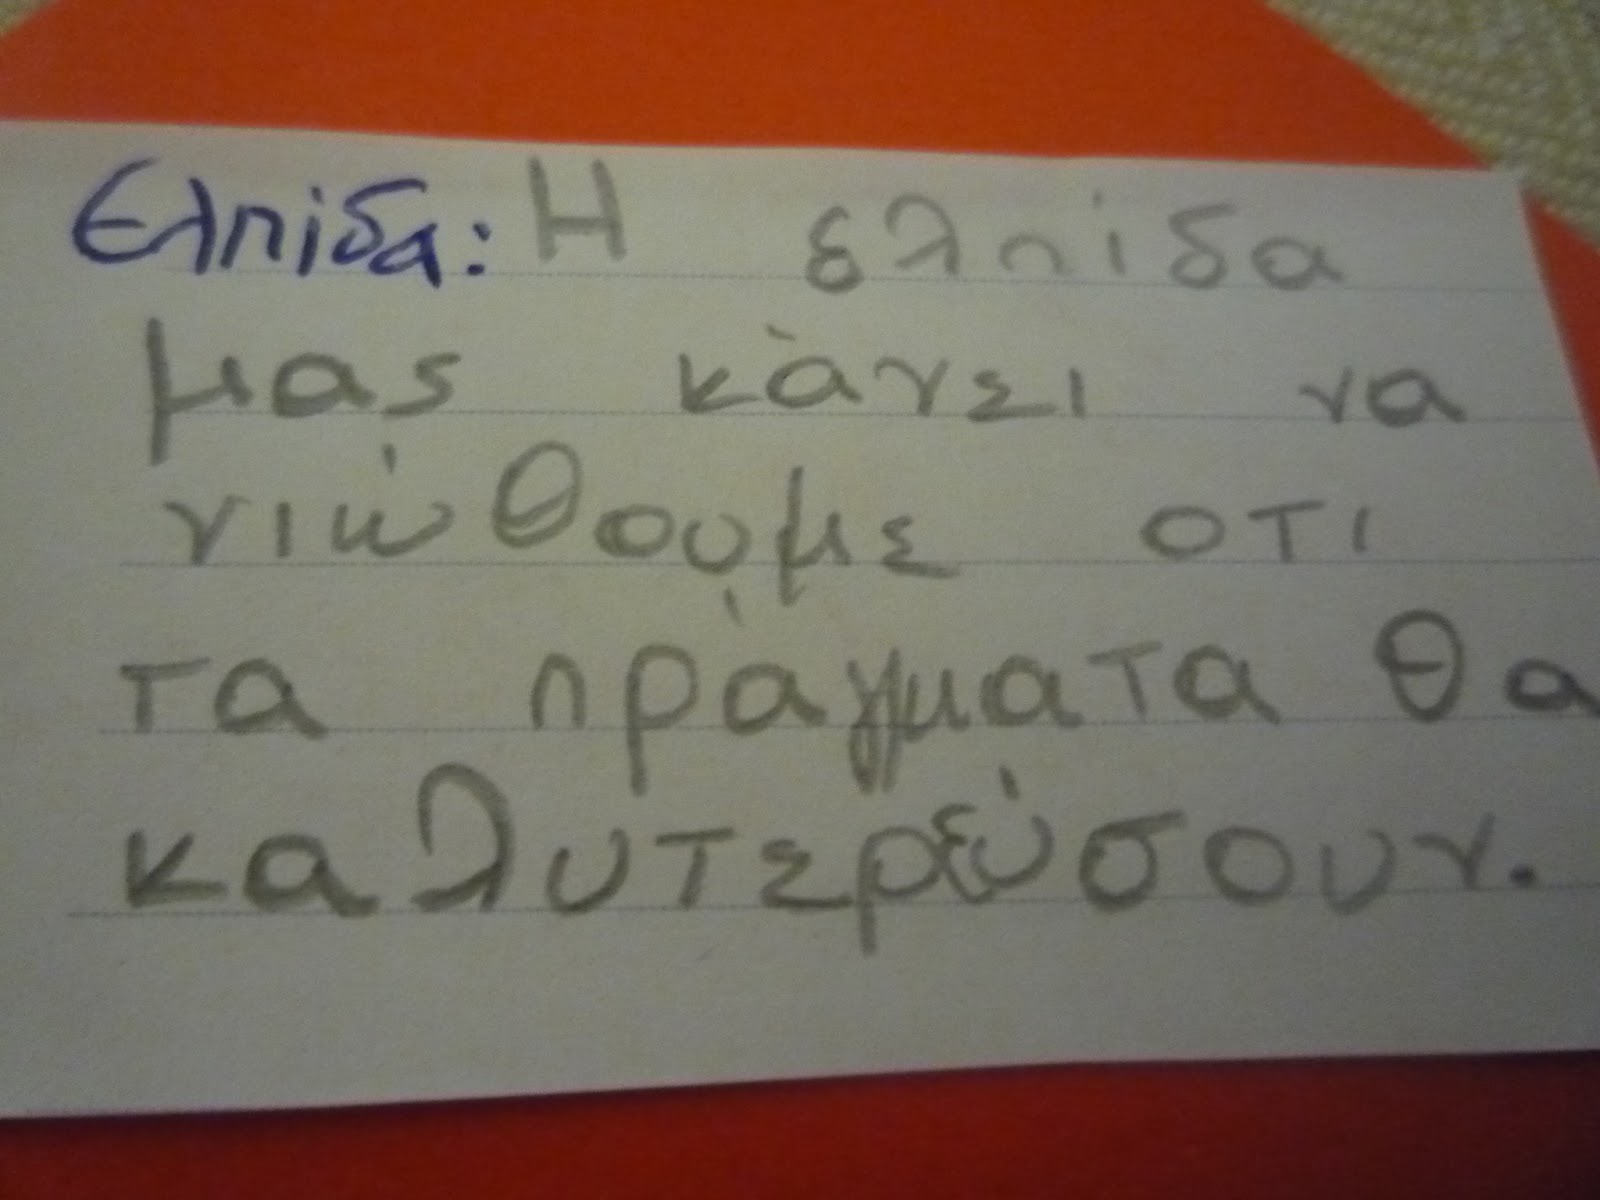 Ελπίδα: Η ελπίδα
μας κάνει να
νιώθουμε οτι
τα πράγματα θα
καλυτερεύσουν.